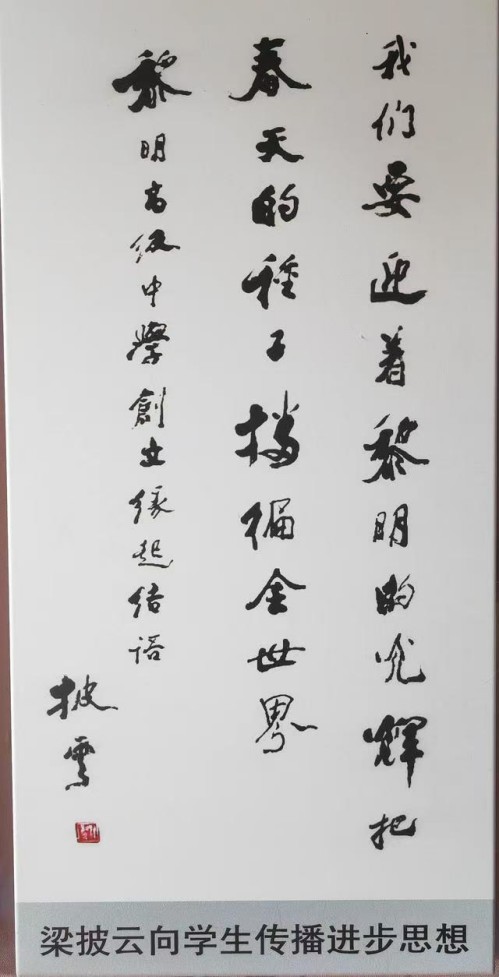 我们要迎着黎明的光辉把
春天的種子播徧全世界
黎明高级中學創立缘起结语
披雲
梁披云向学生传播进步思想